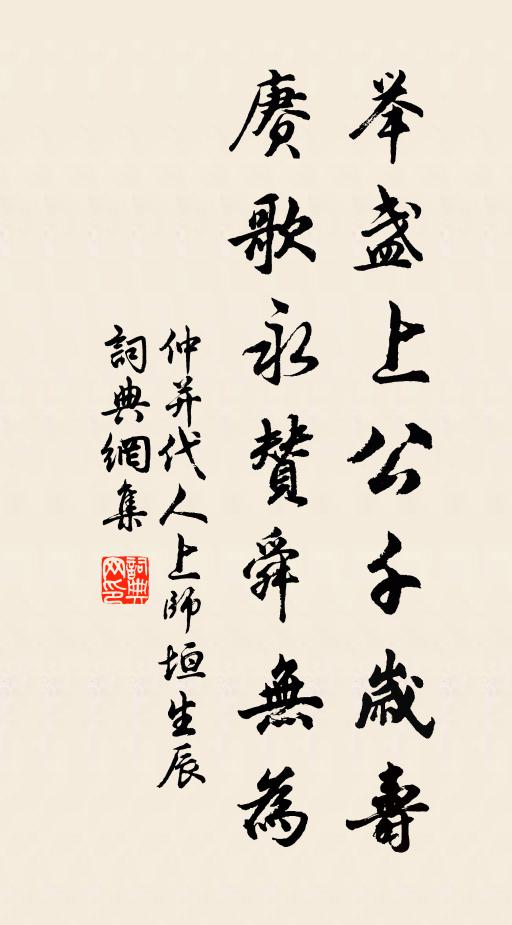 举盏上公千歲壽
赓歌永赞舜無為
仲并代人上師垣生辰
詞典網集
詞典网印